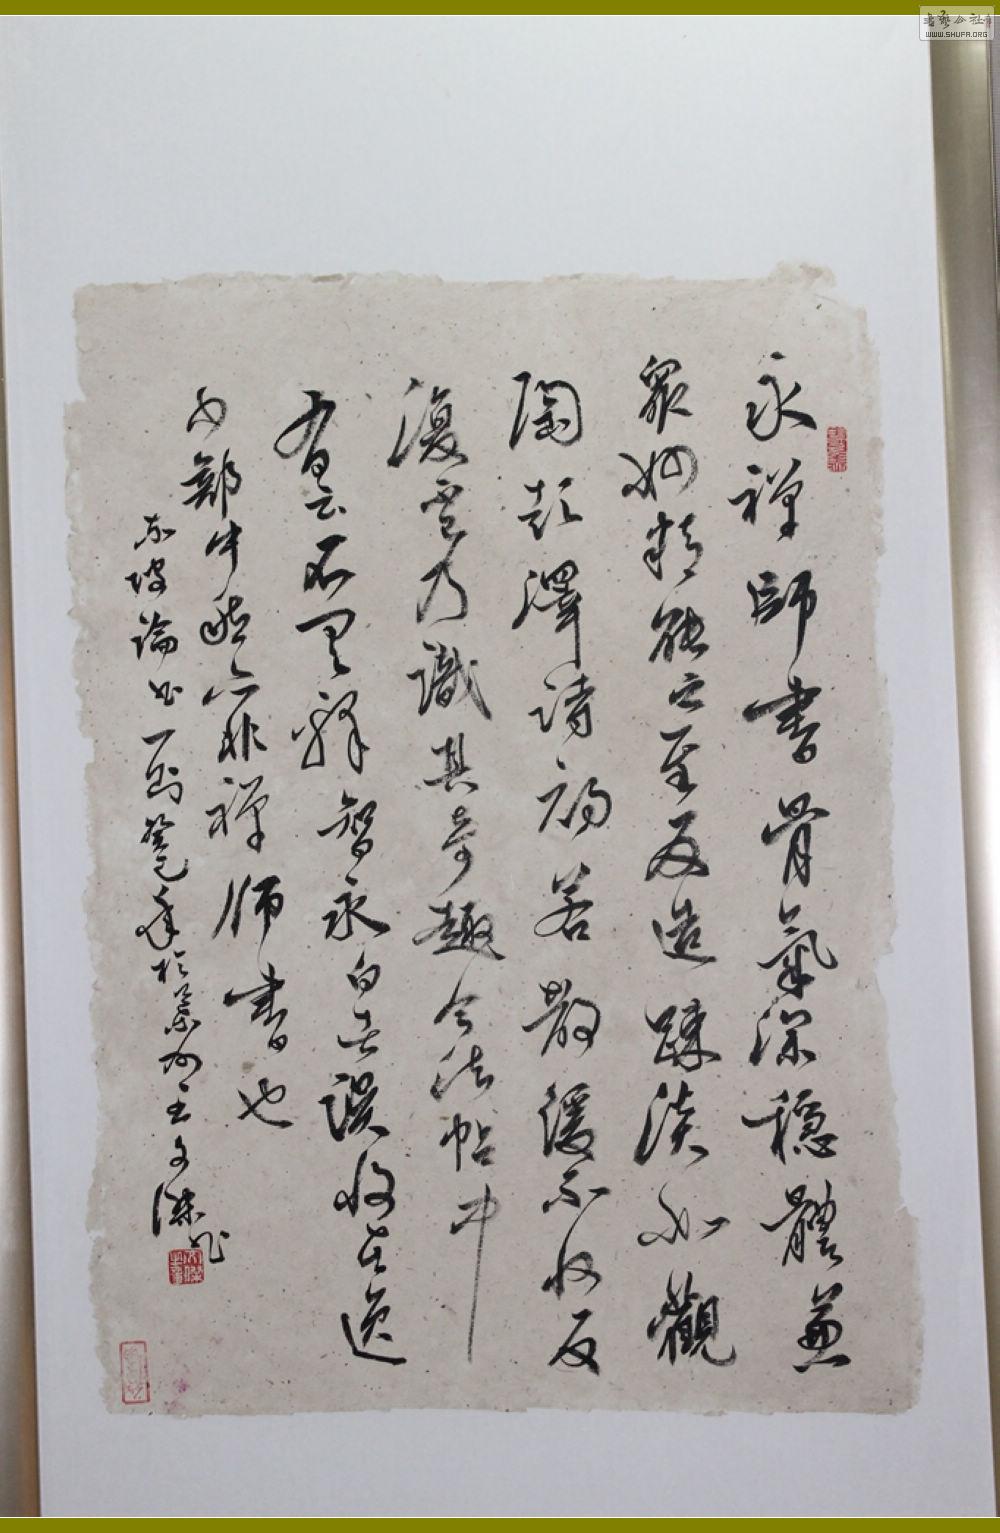 永禪師書骨氣深穩體兼
衆妙精能之至反造踈淡如觀
陶彭澤詩初若散緩不收反
復不已乃識其奇趣今法帖中
有云不具釋智永白者誤收在逸
少部中然亦非禪師書也
東坡論書一則癸巳年於州王文傑
书艺公社
WWW.SHUFA.ORG